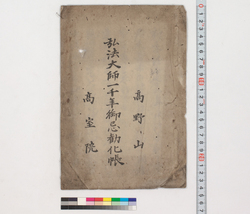 高野山
弘法大師一千年御忌勧化帳
高室院